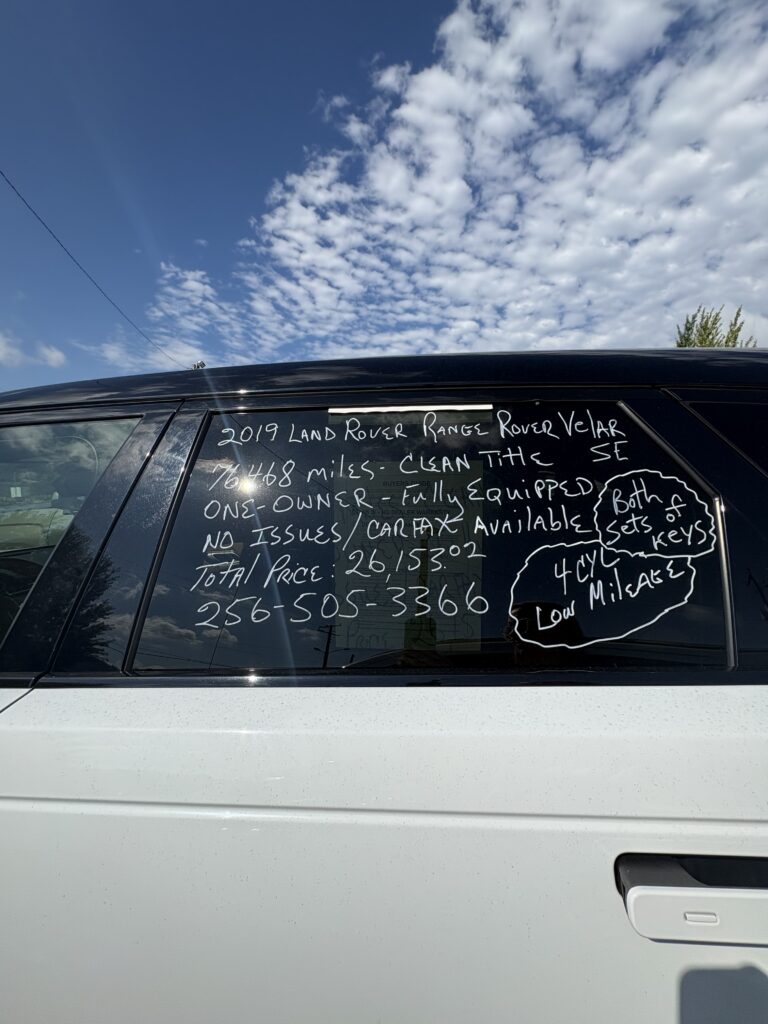 2019 LAND ROVER RANGE ROVER VELAR
SE
76,468 miles - CLEAN Title
ONE-OWNER - Fully EQUIPPED
NO ISSUES / CARFAX AVAILABLE
Total PRICE: 26,153.02
256-505-3366
Both
sets of
KEYS
4 CYL
Low MILEAGE
BUYERS GUIDE